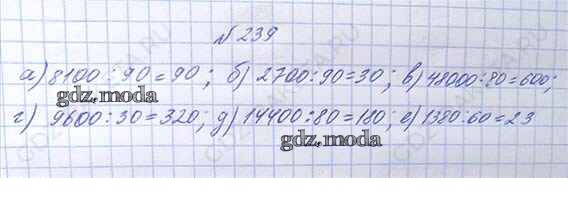 № 239
а) 8100 : 90 = 90; б) 2700 : 90 = 30; в) 48000 : 80 = 600;
gdz.moda
г) 9600 : 30 = 320; д) 14400 : 80 = 180; е) 1380 : 60 = 23
gdz.moda